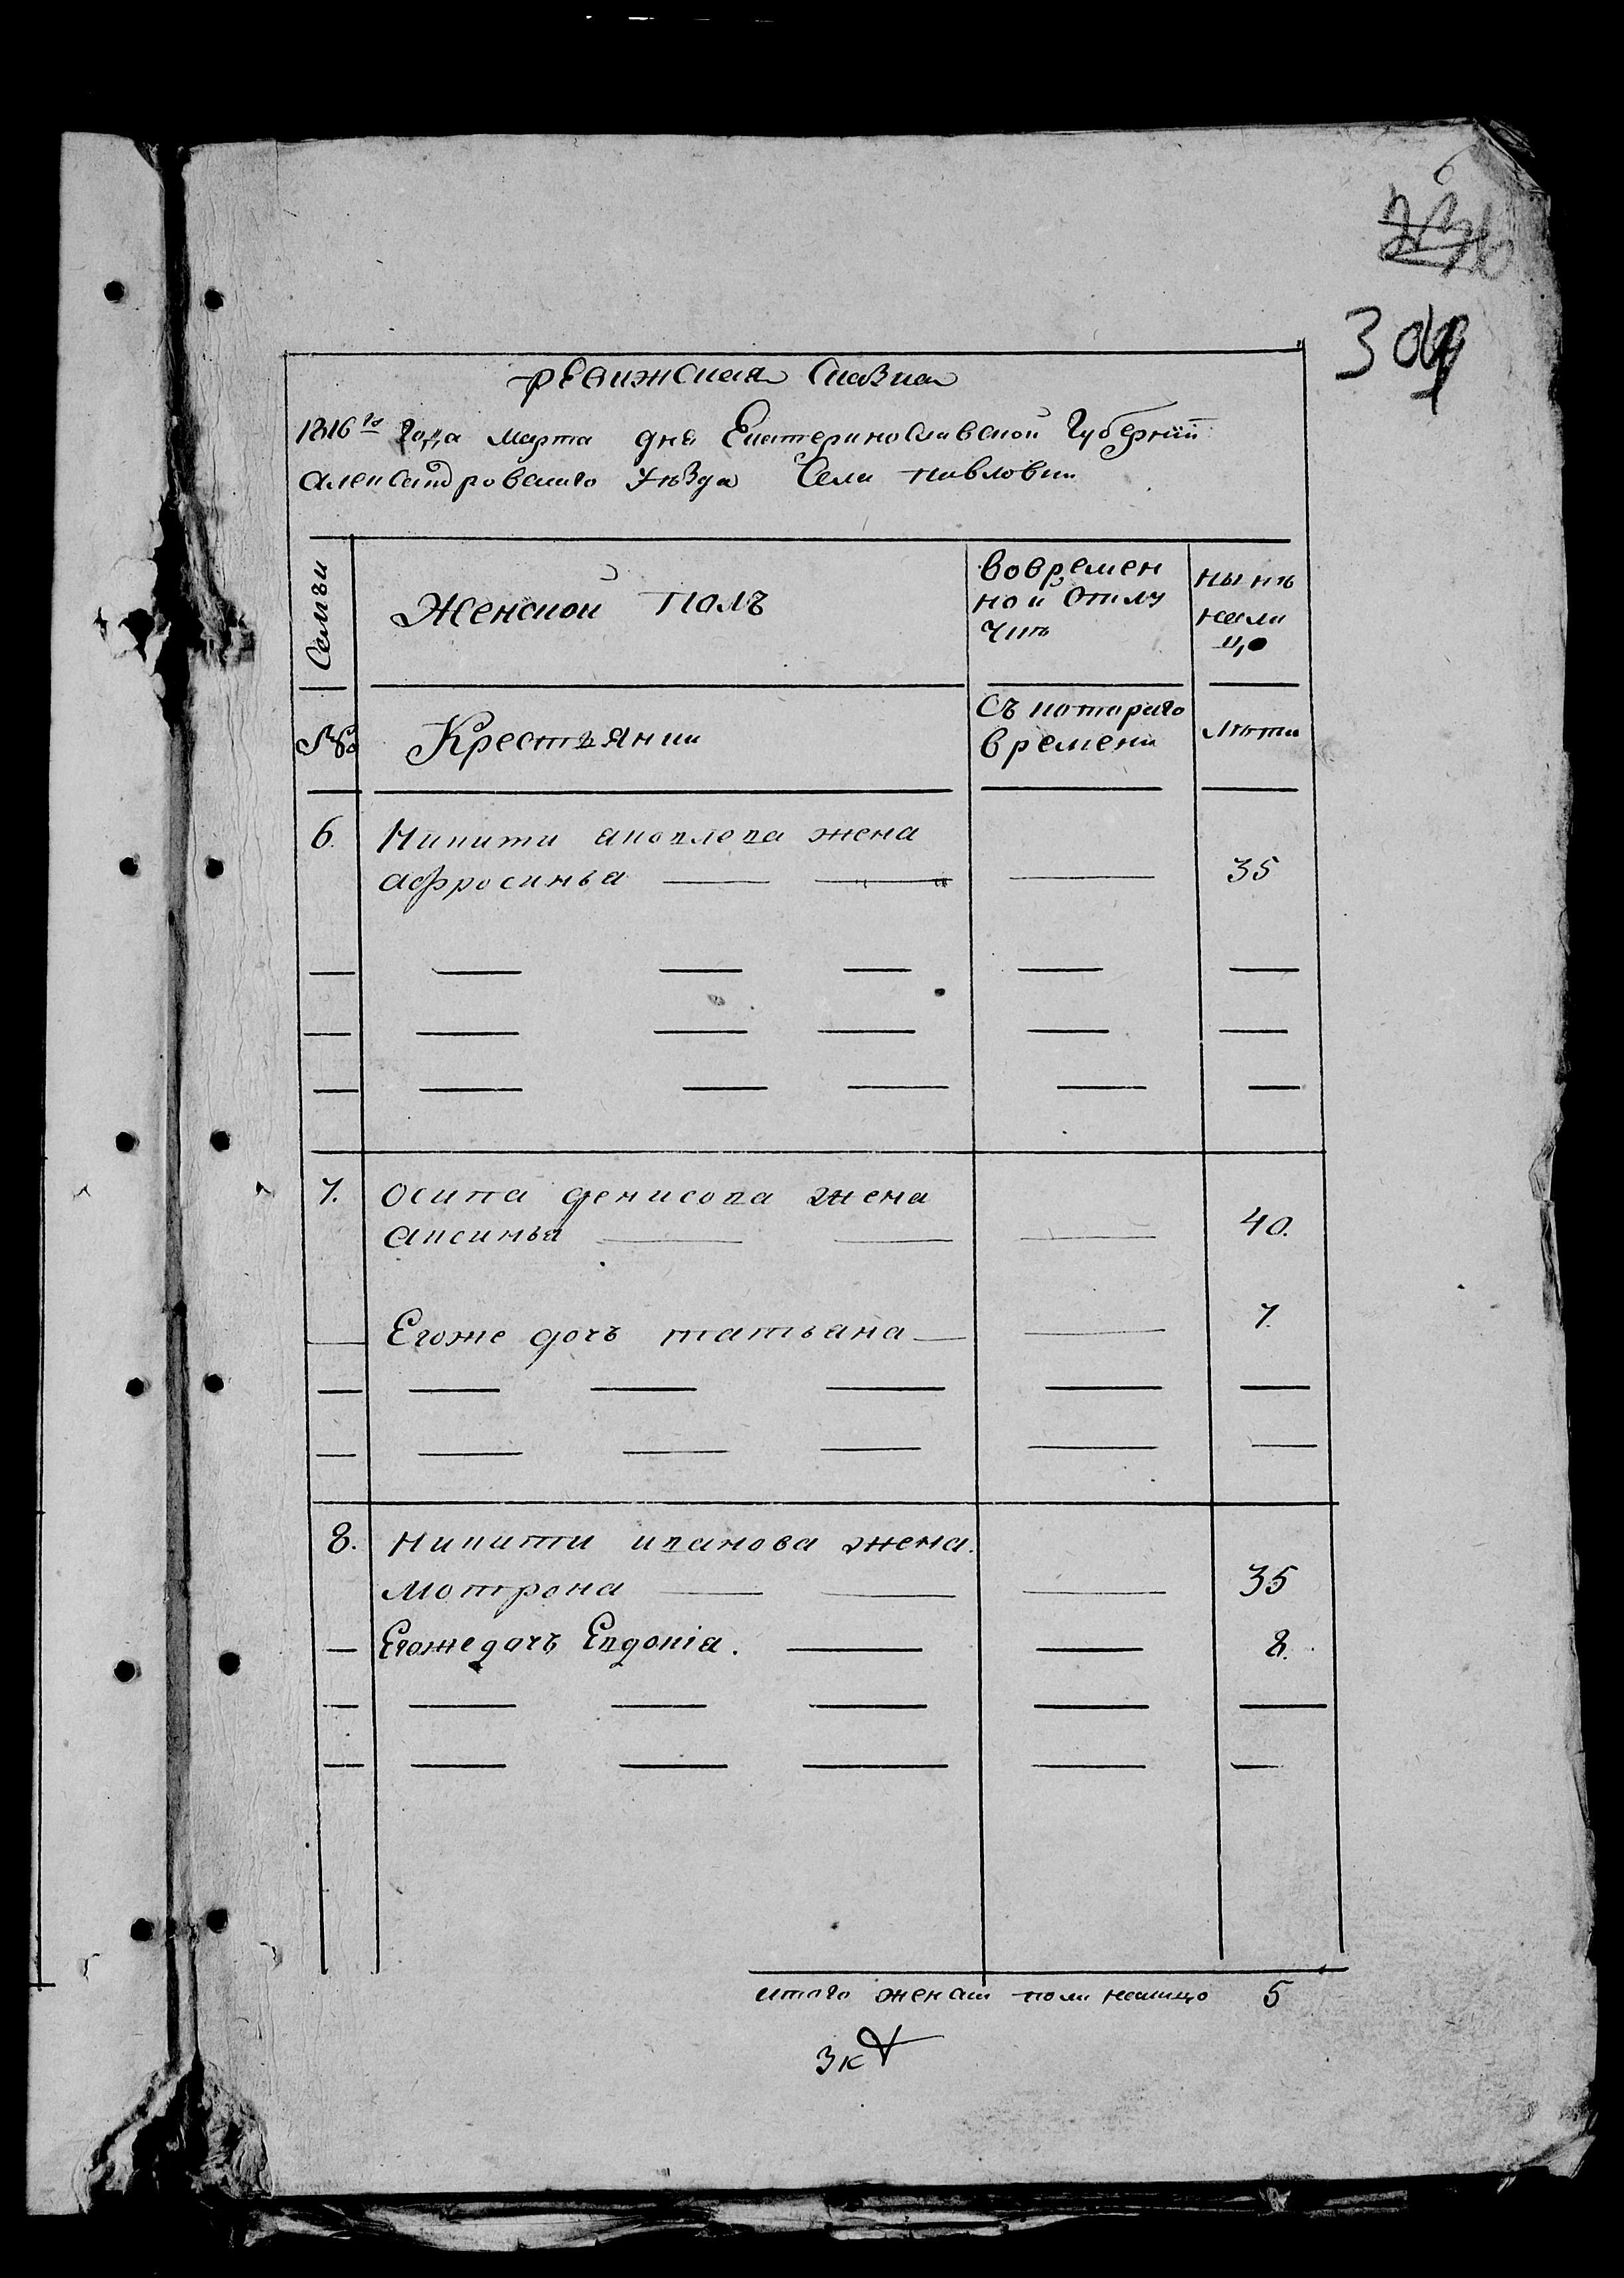 6
309
ревижская сказка
1816го Года марта дня Екатеринославской Губернии
александровскаго Уѣзда Села павловки
Семьи
Женской полъ
вовремен
ной отлу
чкѣ
нынѣ
нали
цо
№
Крестьянки
Съ котораго
времени
лѣта
6. Никиты яковлева жена
афросинья 35
7. Осипа денисова жена
аксинья 40.
Егоже дочь татьяна 7
8. Никиты иванова жена.
Мотрона 35
Егоже дочь Евдокія. 8.
итого женска пола налицо 5